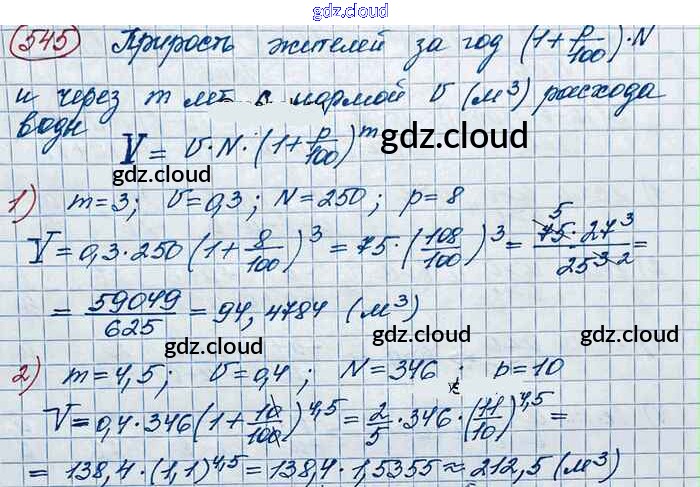 gdz.cloud
545 Прирость жителей за год (1+p/100)·N
и через m лет с нормой v (м³) расхода
воды
V = v·N·(1+p/100)^m
gdz.cloud
gdz.cloud
gdz.cloud
1) m=3; v=0,3; N=250; p=8
V=0,3·250(1+8/100)³=75·(108/100)³=5 75·27³/25³ 2=
=59049/625=94,4784 (м³)
gdz.cloud
gdz.cloud
gdz.cloud
2) m=4,5; v=0,4; N=346; p=10
V=0,4·346(1+10/100)^4,5=2/5·346·(11/10)^4,5=
=138,4·(1,1)^4,5=138,4·1,5355≈212,5 (м³)
gdz.cloud
gdz.cloud